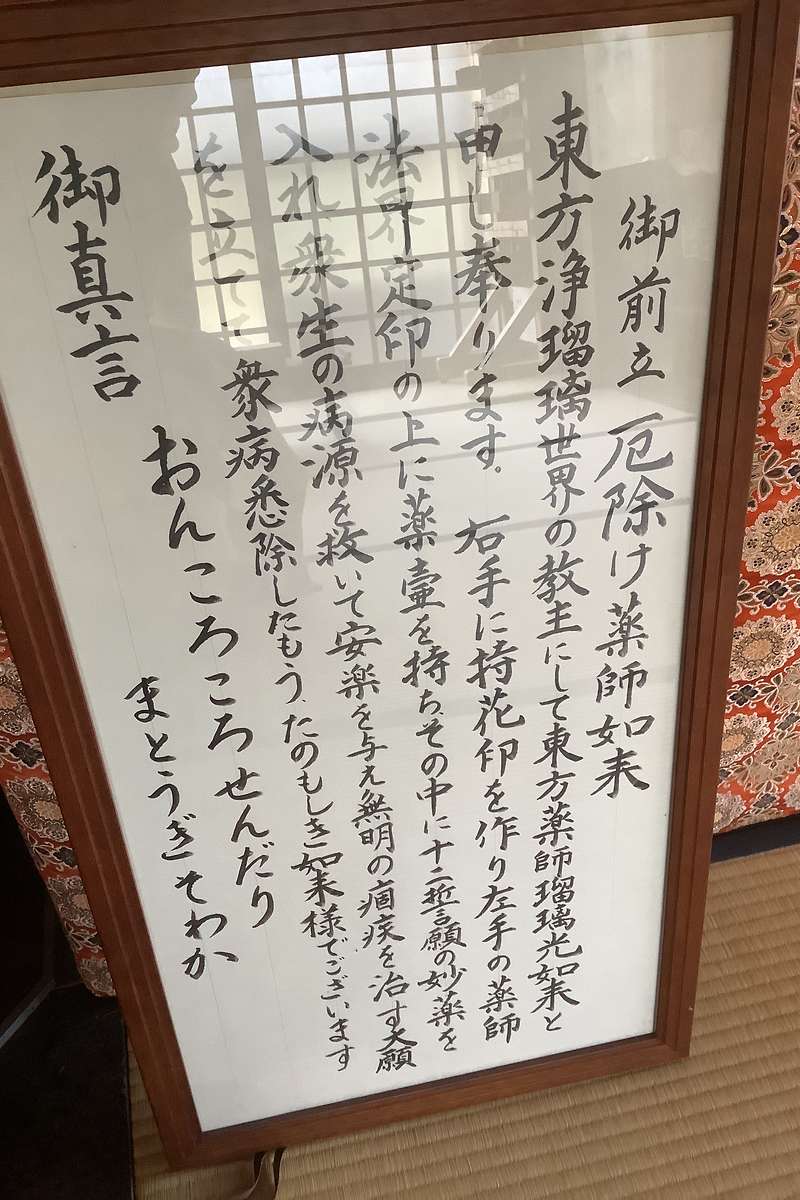 御前立 厄除け薬師如来
東方浄瑠璃世界の教主にして東方薬師瑠璃光如来と
申し奉ります。 右手に持花印を作り左手の薬師
法界定印の上に薬壷を持ちその中に十二誓願の妙薬を
入れ衆生の病源を救いて安楽を与え無明の痼疾を治す大願
を立てて衆病悉除したもう、たのもしき如来様でございます
御真言 おんころころせんだり
まとうぎそわか